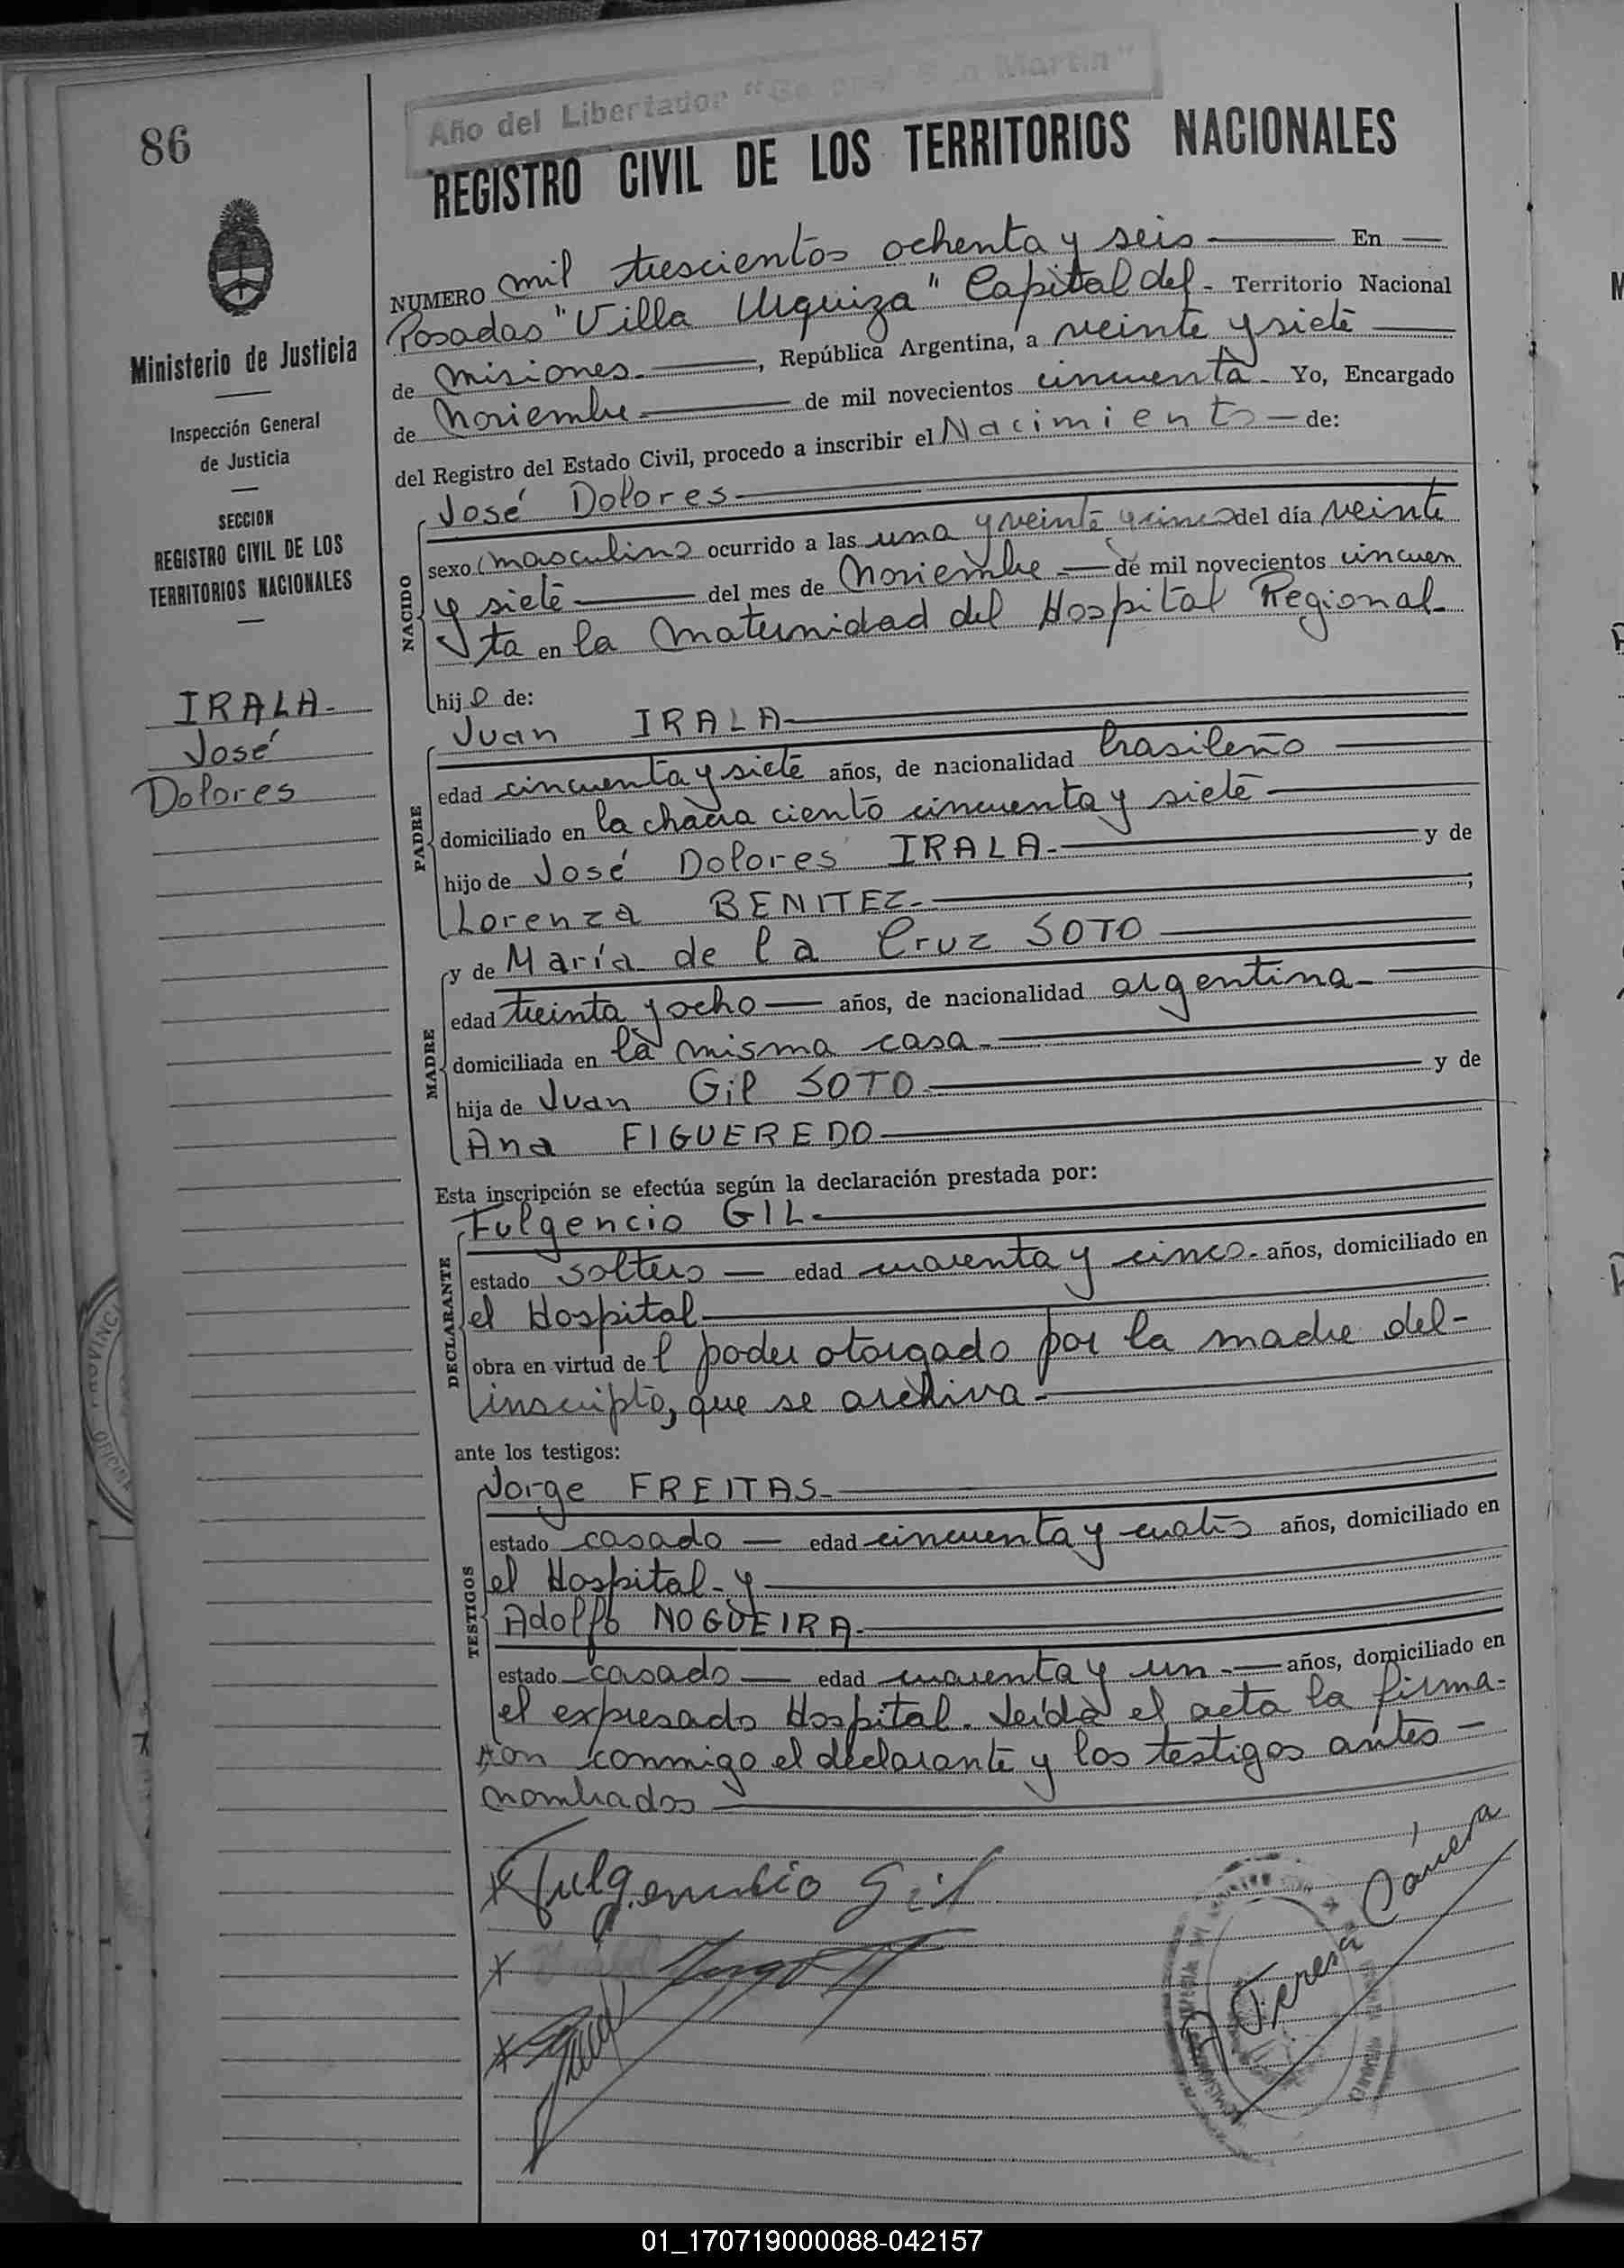 86
Año del Libertador "General San Martín"
REGISTRO CIVIL DE LOS TERRITORIOS NACIONALES
Ministerio de Justicia
Inspección General
de Justicia
SECCION
REGISTRO CIVIL DE LOS
TERRITORIOS NACIONALES
IRALA-
José
Dolores
NUMERO mil trescientos ochenta y seis — En —
Posadas "Villa Urquiza" Capital del - Territorio Nacional
de Misiones. —, República Argentina, a veinte y siete —
de Noviembre — de mil novecientos cincuenta - Yo, Encargado
del Registro del Estado Civil, procedo a inscribir el Nacimiento — de:
NACIDO
José Dolores —
sexo masculino ocurrido a las una y veinte y cinco del día veinte
y siete — del mes de Noviembre — de mil novecientos cincuen
ta en la Maternidad del Hospital Regional-
hijo de:
PADRE
Juan IRALA —
edad cincuenta y siete años, de nacionalidad brasileño —
domiciliado en la chacra ciento cincuenta y siete —
hijo de José Dolores IRALA. — y de
Lorenza BENITEZ. — ;
MADRE
y de María de la Cruz SOTO —
edad treinta y ocho — años, de nacionalidad argentina —
domiciliada en la misma casa. —
hija de Juan Gil SOTO — y de
Ana FIGUEREDO —
Esta inscripción se efectúa según la declaración prestada por:
DECLARANTE
Fulgencio GIL —
estado soltero — edad cuarenta y cinco. años, domiciliado en
el Hospital —
obra en virtud del poder otorgado por la madre del-
inscripto, que se archiva —
ante los testigos:
TESTIGOS
Jorge FREITAS —
estado casado — edad cincuenta y cuatro años, domiciliado en
el Hospital - y —
Adolfo NOGUEIRA —
estado casado — edad cuarenta y un. — años, domiciliado en
el expresado Hospital. Leída el acta la firma-
ron conmigo el declarante y los testigos antes —
nombrados —
x Fulgencio Gil
x Jorge
x
Teresa Cámera
01_170719000088-042157